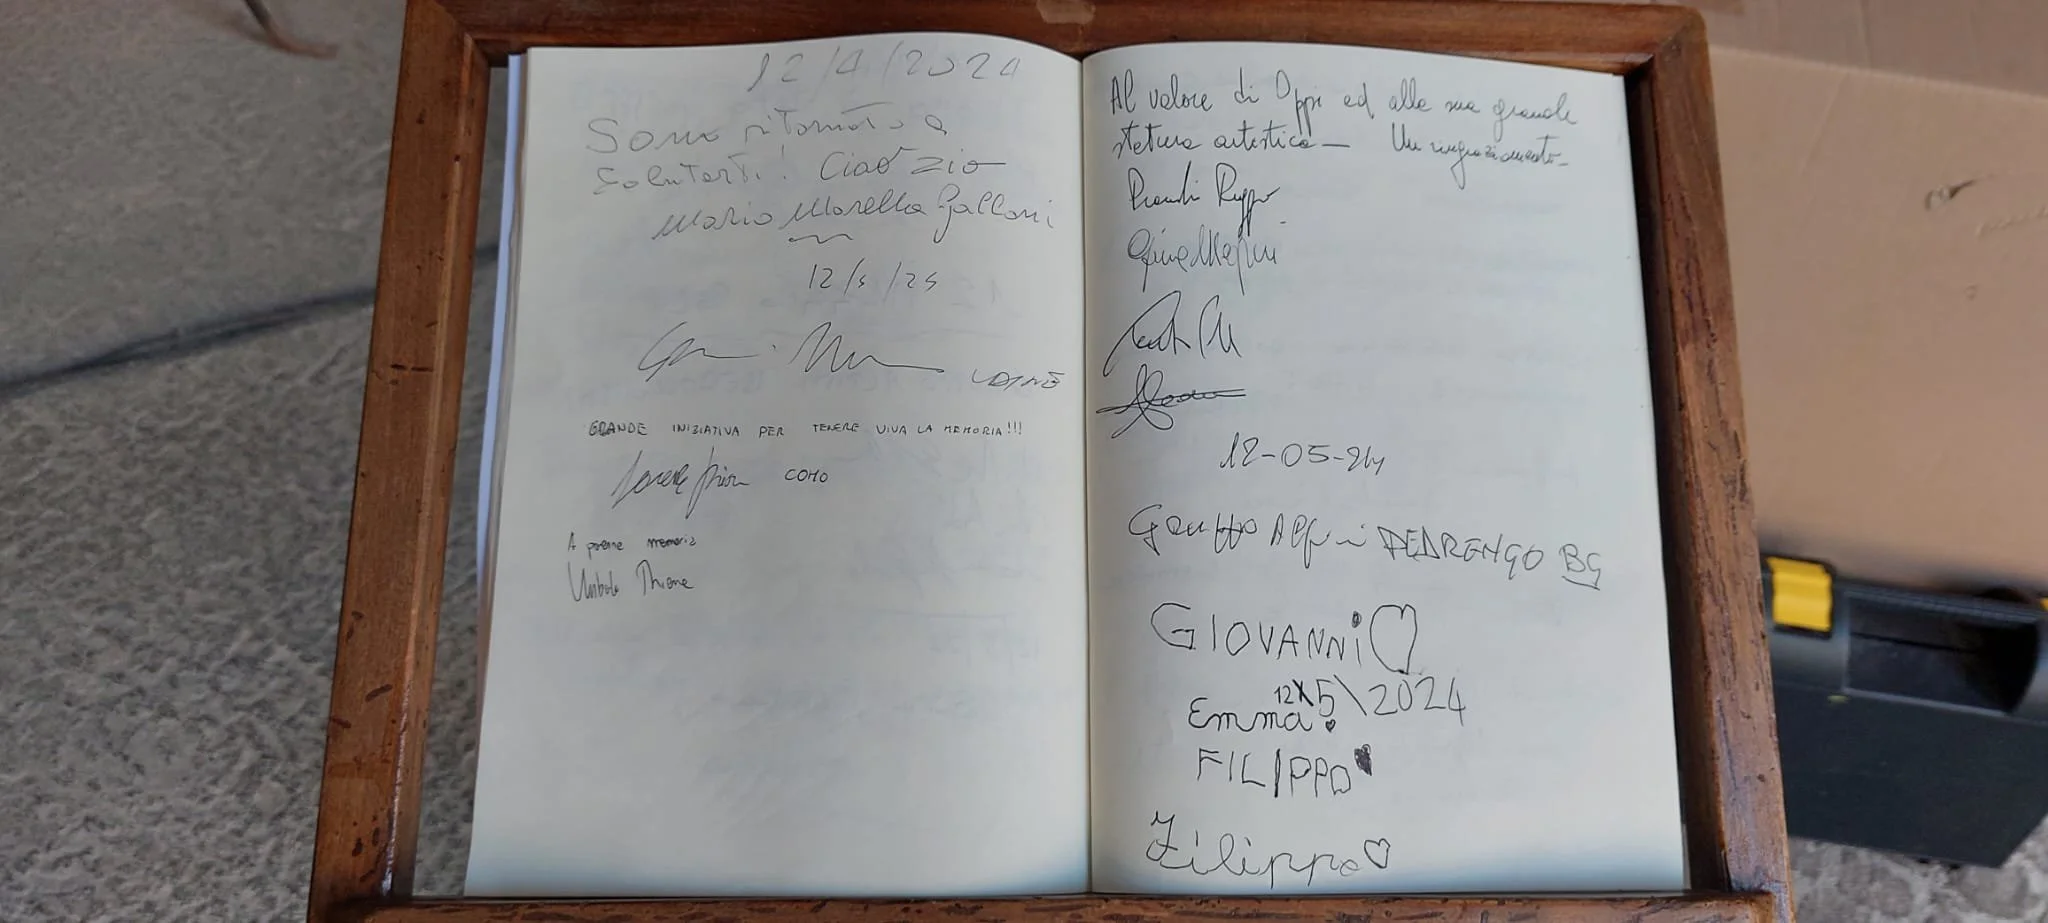 12/4/2024
Sono ritornato a
Salutarti! Ciao zio
Mario Morella Galloni
12/5/24
UDINE
GRANDE INIZIATIVA PER TENERE VIVA LA MEMORIA!!!
COMO
A perenne memoria
Thiene
Al valore di Oppi ed alla sua grande
statura artistica — Un ringraziamento —
12-05-24
Gruppo Alpini PEDRENGO BG
GIOVANNI
12\5\2024
Emma
FILIPPO
Filippo